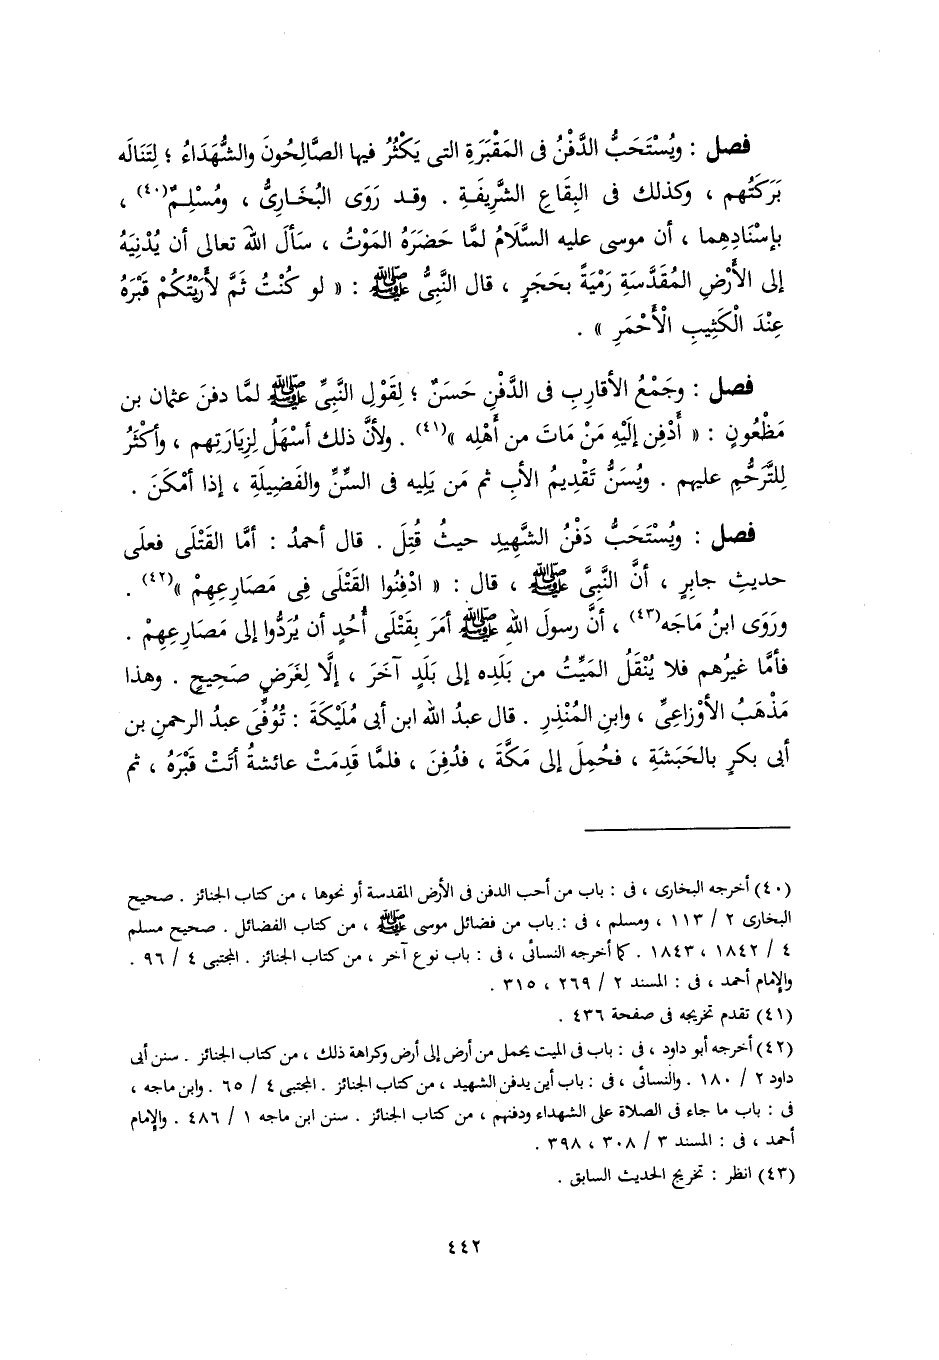 فصل : ويُسْتَحَبُّ الدَّفْنُ فى المَقْبَرَةِ التى يَكْثُرُ فيها الصَّالِحُونَ والشُّهَدَاءُ ؛ لِتَنَالَه
بَرَكَتُهم ، وكذلك فى البِقَاعِ الشَّرِيفَةِ . وقد رَوَى البُخَارِىُّ ، ومُسْلِمٌ(٤٠) ،
بإسْنَادِهِما ، أن موسى عليه السَّلَامُ لمَّا حَضَرَهُ المَوْتُ ، سَأَلَ اللهَ تعالى أن يُدْنِيَهُ
إلى الأَرْضِ المُقَدَّسَةِ رَمْيَةً بحَجَرٍ ، قال النَّبِىُّ ﷺ : « لو كُنْتُ ثَمَّ لأَرَيْتُكُمْ قَبْرَهُ
عِنْدَ الْكَثِيبِ الْأَحْمَرِ » .
فصل : وجَمْعُ الأقارِبِ فى الدَّفْنِ حَسَنٌ ؛ لِقَوْلِ النَّبِىِّ ﷺ لمَّا دفنَ عثمان بن
مَظْعُونٍ : « أَدْفِن إلَيْهِ مَنْ مَاتَ من أَهْلِه »(٤١) . ولأنَّ ذلك أسْهَلُ لِزِيَارَتِهم ، وأكْثَرُ
لِلتَّرَحُّمِ عليهم . ويُسَنُّ تَقْدِيمُ الأبِ ثم مَن يَلِيه فى السِّنِّ والفَضِيلَةِ ، إذا أمْكَنَ .
فصل : ويُسْتَحَبُّ دَفْنُ الشَّهِيدِ حيثُ قُتِلَ . قال أحمدُ : أمَّا القَتْلَى فعلَى
حديثِ جابِرٍ ، أنَّ النَّبِىَّ ﷺ ، قال : « ادْفِنُوا القَتْلَى فِى مَصَارِعِهِمْ »(٤٢) .
ورَوَى ابنُ مَاجَه(٤٣) ، أنَّ رسولَ اللهِ ﷺ أمَرَ بِقَتْلَى أُحُدٍ أن يُرَدُّوا إلى مَصَارِعِهِمْ .
فأمَّا غيرُهم فلا يُنْقَلُ المَيِّتُ من بَلَدِه إلى بَلَدٍ آخَرَ ، إلَّا لِغَرَضٍ صَحِيحٍ . وهذا
مَذْهَبُ الأَوْزاعِىِّ ، وابنِ المُنْذِرِ . قال عبدُ الله ابن أبى مُلَيْكَةَ : تُوُفِّىَ عبدُ الرحمنِ بن
أبى بكرٍ بالحَبَشَةِ ، فحُمِلَ إلى مَكَّةَ ، فدُفِنَ ، فلمَّا قَدِمَتْ عائشةُ أتَتْ قَبْرَهُ ، ثم
(٤٠) أخرجه البخارى ، فى : باب من أحب الدفن فى الأرض المقدسة أو نحوها ، من كتاب الجنائز . صحيح
البخارى ٢ / ١١٣ ، ومسلم ، فى : باب من فضائل موسى ﷺ ، من كتاب الفضائل . صحيح مسلم
٤ / ١٨٤٢ ، ١٨٤٣ . كما أخرجه النسائى ، فى : باب نوع آخر ، من كتاب الجنائز . المجتبى ٤ / ٩٦ .
والإمام أحمد ، فى : المسند ٢ / ٢٦٩ ، ٣١٥ .
(٤١) تقدم تخريجه فى صفحة ٤٣٦ .
(٤٢) أخرجه أبو داود ، فى : باب فى الميت يحمل من أرض إلى أرض وكراهة ذلك ، من كتاب الجنائز . سنن أبى
داود ٢ / ١٨٠ . والنسائى ، فى : باب أين يدفن الشهيد ، من كتاب الجنائز . المجتبى ٤ / ٦٥ . وابن ماجه ،
فى : باب ما جاء فى الصلاة على الشهداء ودفنهم ، من كتاب الجنائز . سنن ابن ماجه ١ / ٤٨٦ . والإمام
أحمد ، فى : المسند ٣ / ٣٠٨ ، ٣٩٨ .
(٤٣) انظر : تخريج الحديث السابق .
٤٤٢